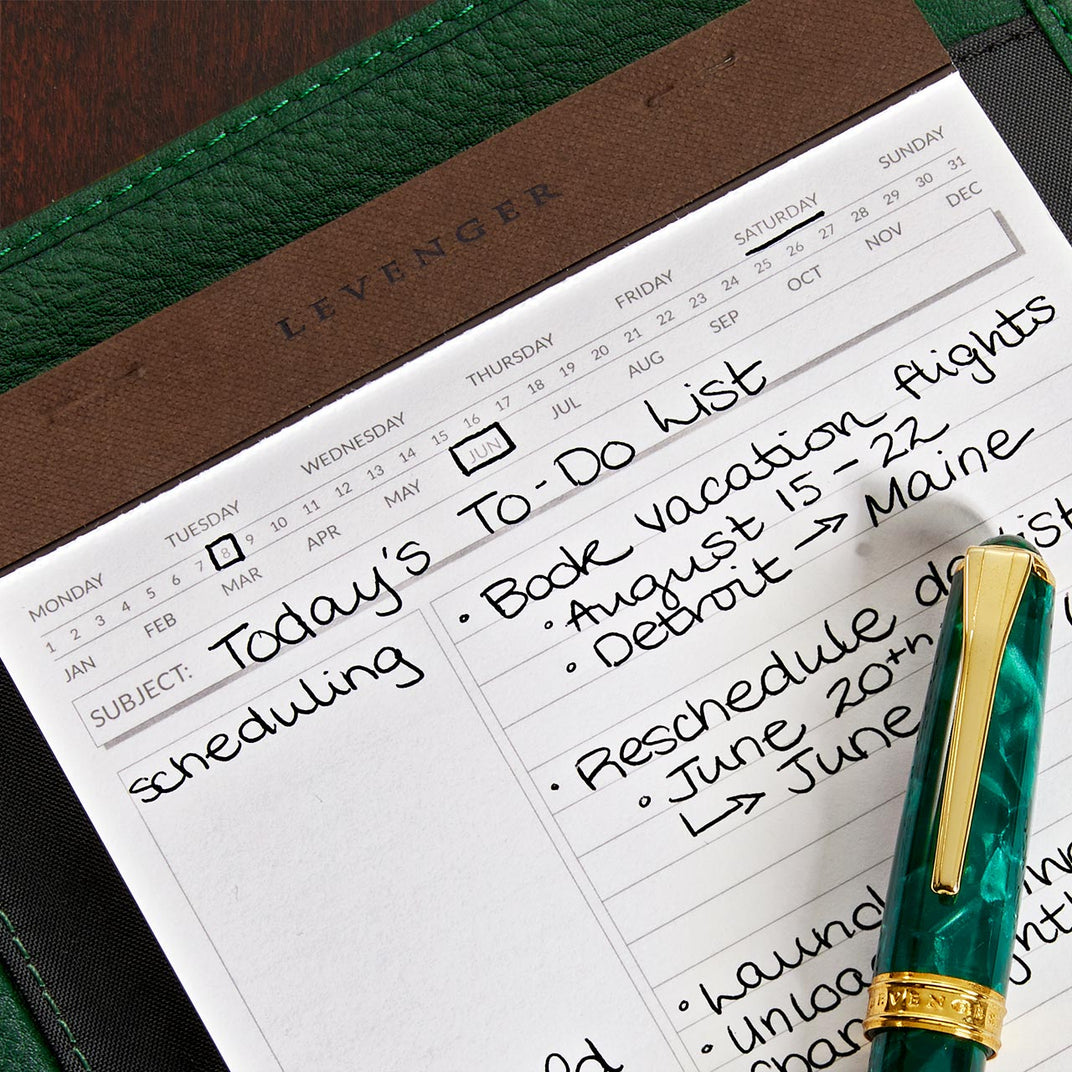 LEVENGER
MONDAY TUESDAY WEDNESDAY THURSDAY FRIDAY SATURDAY SUNDAY
1 2 3 4 5 6 7 8 9 10 11 12 13 14 15 16 17 18 19 20 21 22 23 24 25 26 27 28 29 30 31
JAN FEB MAR APR MAY JUN JUL AUG SEP OCT NOV DEC
SUBJECT: Today's To-Do List
scheduling
• Book vacation flights
• August 15 - 22
• Detroit → Maine
• Reschedule
• June 20th
↳ June
LEVENGER